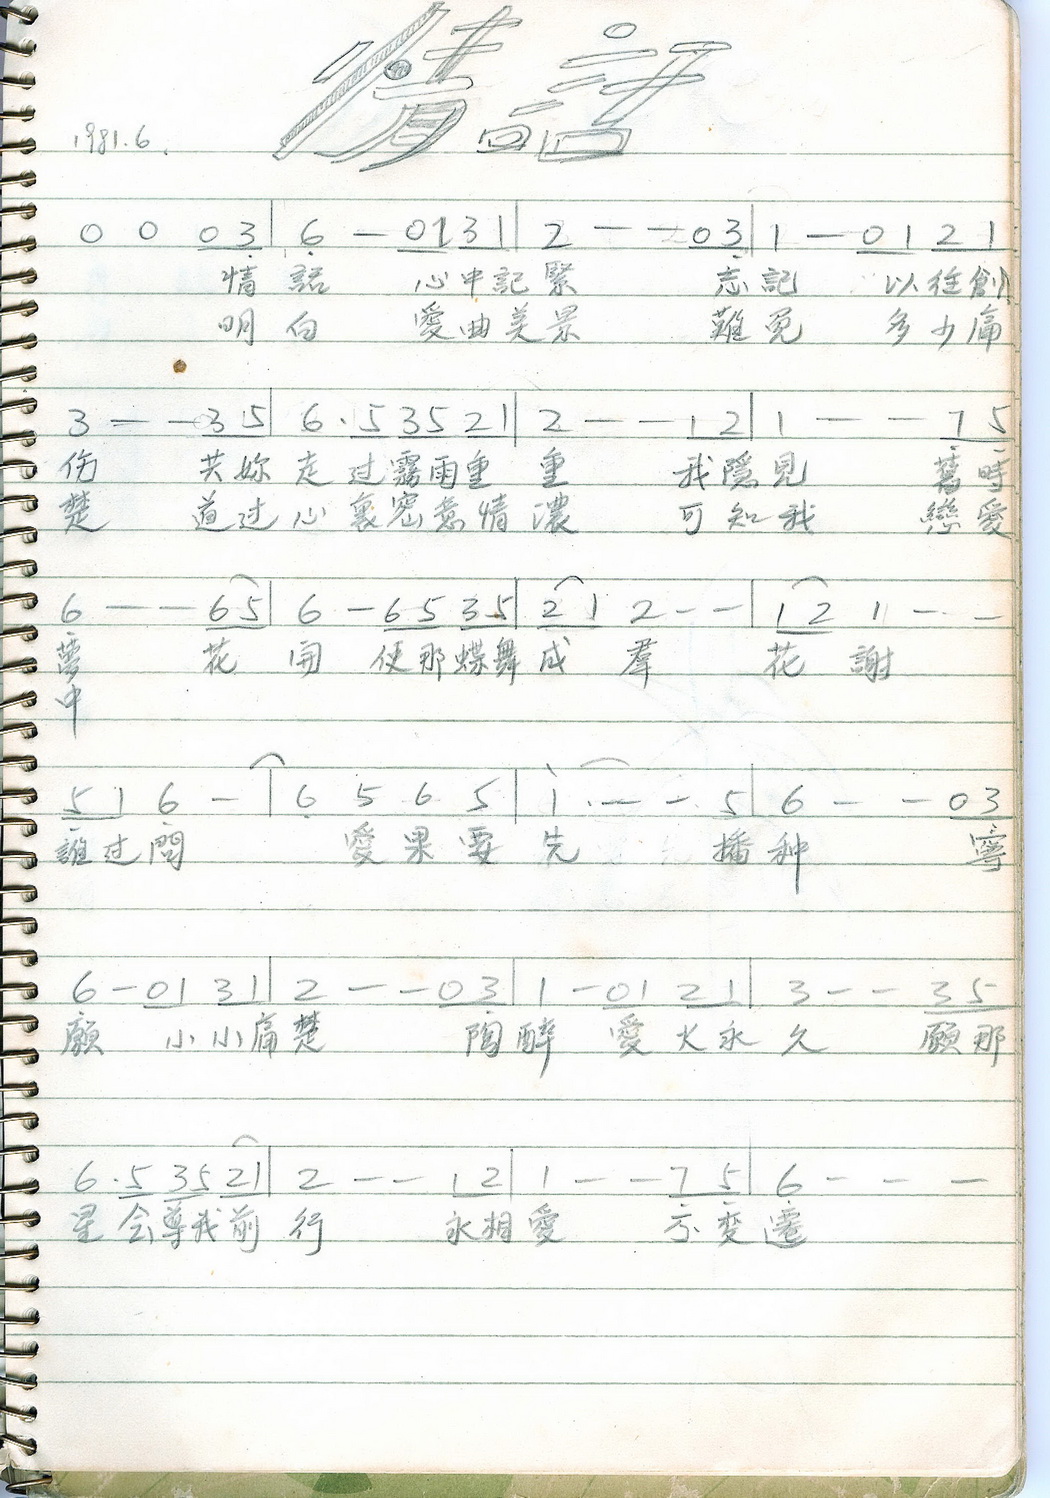 情話
1981.6.
0 0 03 | 6 — 0131 | 2 — — 03 | 1 — 01 21
情話 心中記緊 忘記 以往創
明白 愛曲美景 難免 多少痛
3 — — 35 | 6·5 35 21 | 2 — — 12 | 1 — — 75
伤 共妳走过霧雨重重 我隱見 舊時
楚 道过心裏密意情濃 可知我 戀愛
6 — — 65 | 6 — 65 35 | 21 2 — — | 12 1 — —
夢 花開 使那蝶舞成羣 花謝
中
51 6 — | 6 5 6 5 | 1 · — — 5 | 6 — — 03
誰过問 愛果要先 播种 寧
6 — 01 31 | 2 — — 03 | 1 — 01 21 | 3 — — 35
願 小小痛楚 陶醉 愛火永久 願那
6·5 35 21 | 2 — — 12 | 1 — — 75 | 6 — — —
星会尊我前行 永相愛 不变遷